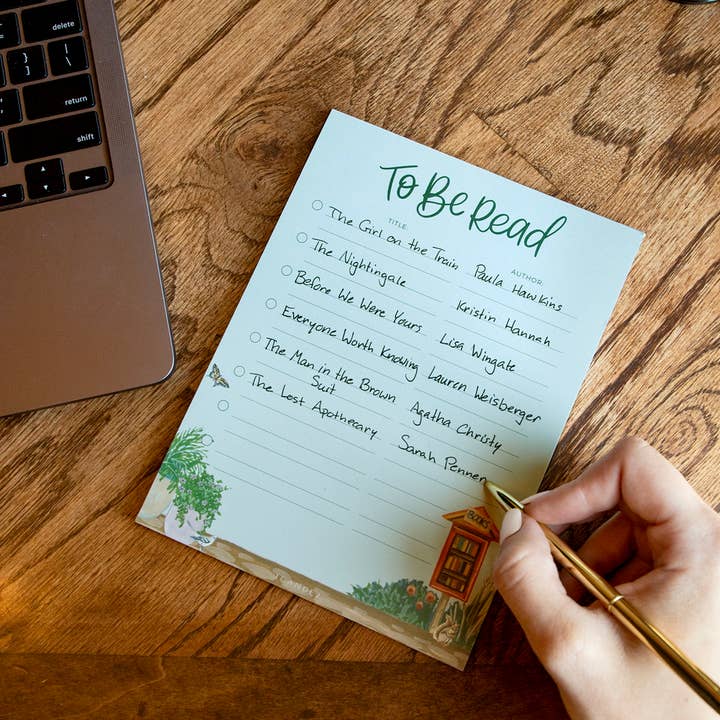 delete
return
shift
To Be Read
TITLE: AUTHOR:
The Girl on the Train Paula Hawkins
The Nightingale Kristin Hannah
Before We Were Yours Lisa Wingate
Everyone Worth Knowing Lauren Weisberger
The Man in the Brown Agatha Christy
Suit
The Lost Apothecary Sarah Penner
BOOKS